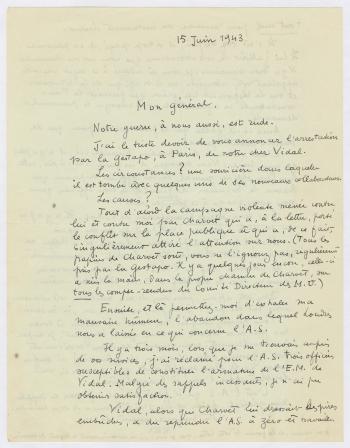 15 Juin 1943
Mon général,
Notre guerre, à nous aussi, est rude.
J'ai le triste devoir de vous annoncer l'arrestation
par la Gestapo, à Paris, de notre cher Vidal.
Les circonstances? une souricière dans laquelle
il est tombé avec quelques uns de ses nouveaux collaborateurs.
Les causes?
Tout d'abord la campagne violente menée contre
lui et contre moi par Charvet qui a, à la lettre, porté
le conflit sur la place publique et qui a, de ce fait,
singulièrement attiré l'attention sur nous. (Tous les
papiers de Charvet sont, vous ne l'ignorez pas, régulièrement
pris par la Gestapo. Il y a quelques jours encore, celle-ci
a mis la main, dans la propre chambre de Charvet, sur
tous les compte-rendus du Comité Directeur des M.U.)
Ensuite, et là permettez-moi d'exhaler ma
mauvaise humeur, l'abandon dans lequel Londres
nous a laissés en ce qui concerne l'A.S.
Il y a trois mois, lors que je me trouvais auprès
de vos services, j'ai réclamé pour l'A.S. trois officiers
susceptibles de constituer l'armature de l'E.M. de
Vidal. Malgré des rappels incessants, je n'ai pu
obtenir satisfaction.
Vidal, alors que Charvet lui dressait les pires
embûches, a dû reprendre l'A.S. à zéro et travailler